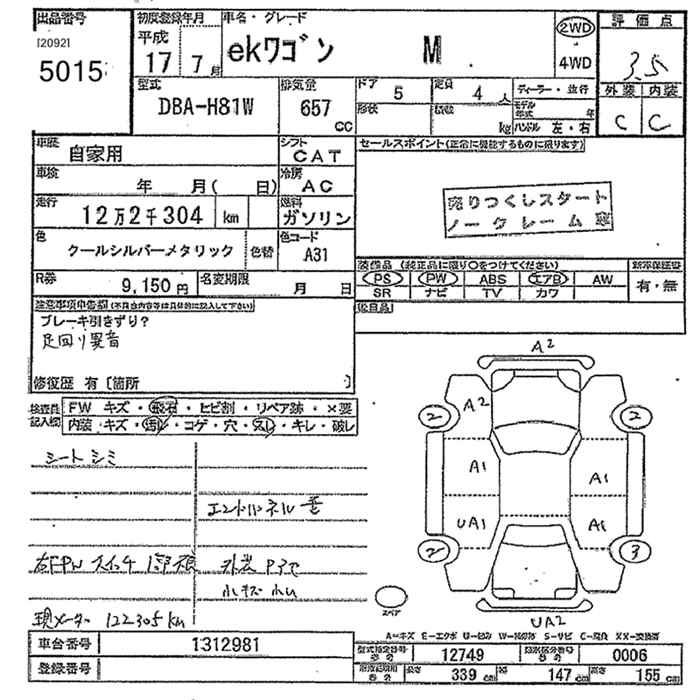 出品番号
120921
5015
初度登録年月
平成
17 7月
車名・グレード
ekワゴン M
2WD
4WD
評価点
3.5
外装 内装
C C
型式
DBA-H81W
排気量
657
CC
ドア
5
形状
定員
4人
積載
kg
ディーラー・並行
モデル年式 年
ハンドル 左・右
車歴
自家用
シフト
CAT
車検
年 月( 日)
冷房
AC
走行
12万2千304 km
燃料
ガソリン
色
クールシルバーメタリック
色替
色コード
A31
R券
9,150円
名変期限
月 日
セールスポイント(正常に機能するものに限ります)
売りつくしスタート
ノークレーム
装備品 (純正品に限り○をつけてください)
PS PW ABS エアB AW
SR ナビ TV カワ
新車保証書
有・無
後日品
注意事項申告欄(不具合内容等は具体的に記入して下さい)
ブレーキ引きずり?
足回り異音
修復歴 有〔箇所 〕
検査員記入欄
FW キズ・飛石・ヒビ割・リペア跡・×要
内装 キズ・汚レ・コゲ・穴・スレ・キレ・破レ
シートシミ
右FPWスイッチ
外装
小キズ小凹
現メーター 122305km
A2
A2
2 2
A1 A1
UA1 A1
2 3
UA2
スペア
A-キズ E-エクボ U-凹み W-補修跡 S-サビ C-腐食 XX-交換済
車台番号
1312981
登録番号
型式指定番号
12749
類別区分番号
0006
長さ
339 cm
幅
147 cm
高さ
155 cm